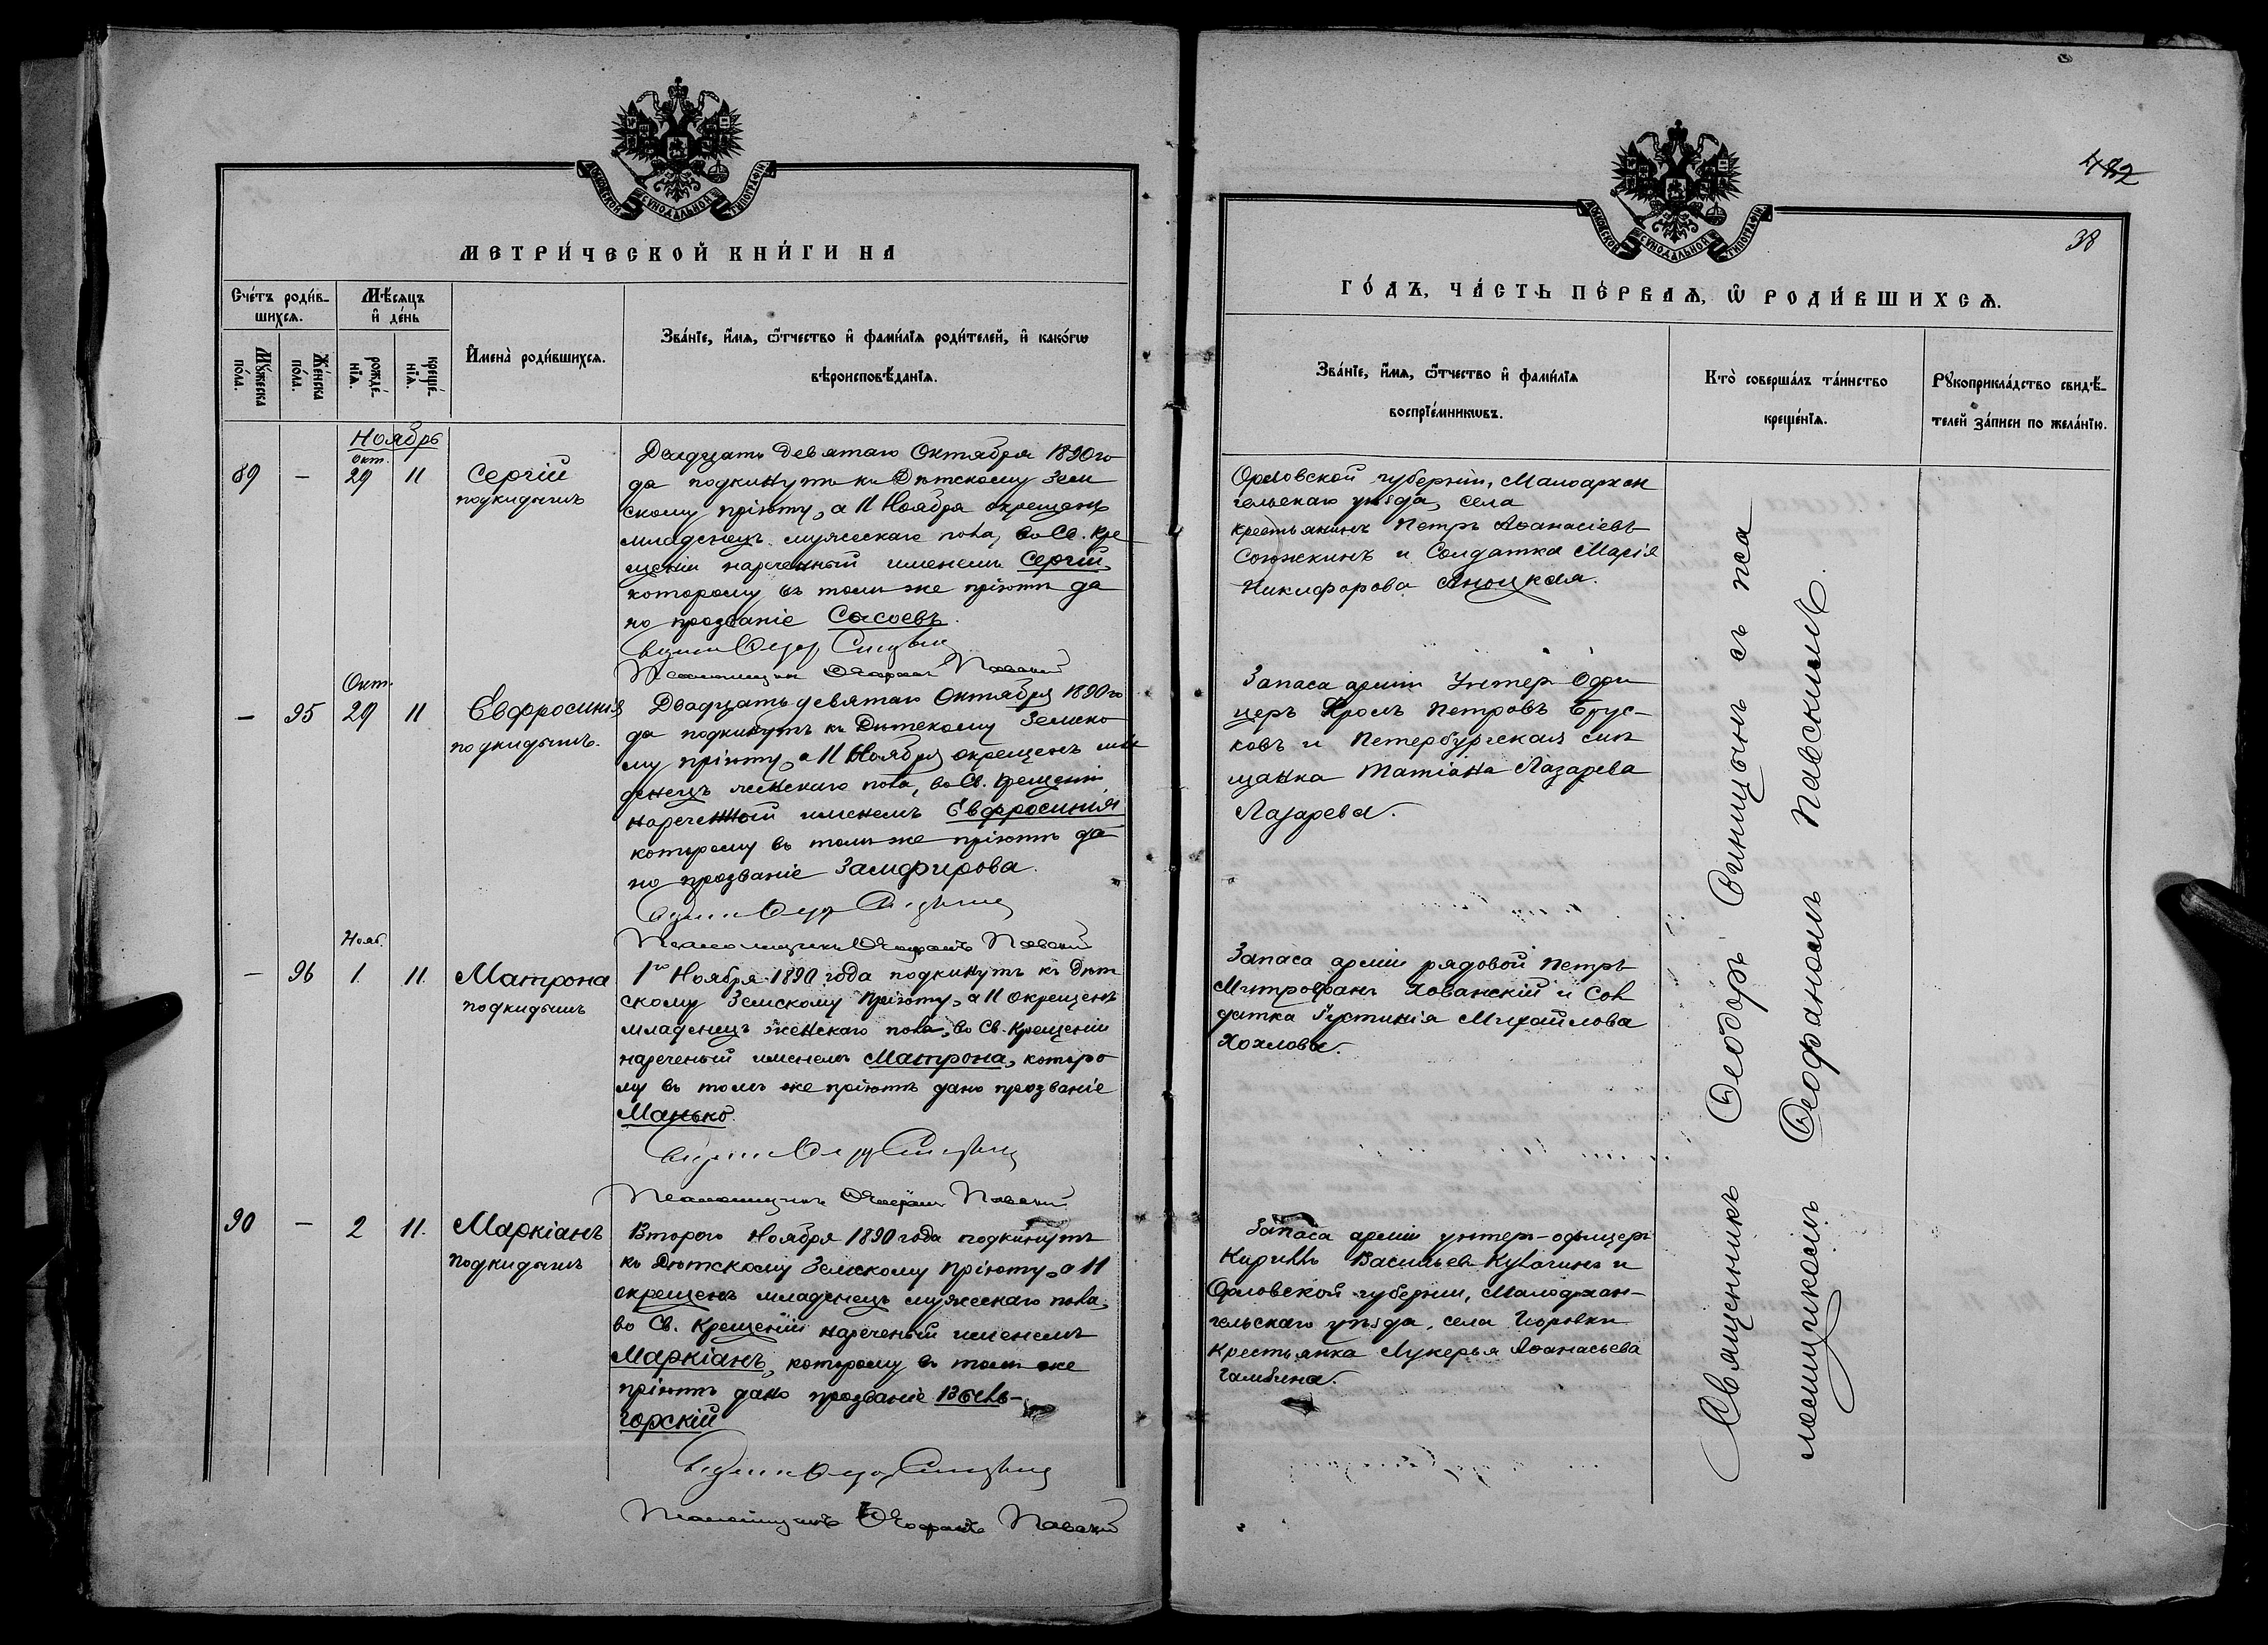 МОСКОВСКОЙ СѴНОДАЛЬНОЙ ТИПОГРАФІИ
МЕТРИ́ЧЕСКОЙ КНИ́ГИ НА
Сче́тъ роди́в-
шихсѧ.
Мѣ́сѧцъ
и҆ де́нь
Мꙋ́жеска
по́ла.
Же́нска
по́ла.
рожде́-
нїѧ.
креще́-
нїѧ.
И҆мена̀ роди́вшихсѧ.
Зва́нїе, и҆́мѧ, ѻ҆́тчество и҆ фами́лїѧ роди́телей, и҆ како́гѡ
вѣроисповѣ́данїѧ.
Ноябрь
Окт.
89 — 29 11 Сергій
подкидышъ
Двадцать девятаго Октября 1890 го
да подкинутъ къ Дѣтскому Зем
скому пріюту, а 11 Ноября окрещенъ
младенецъ мужескаго пола, во Св. Кре
щеніи нареченный именемъ Сергій,
которому въ томъ же пріютѣ да
но прозваніе Сасоевъ.
Псаломщикъ Ѳеофанъ Павскій
Окт.
— 95 29 11 Евфросинія
подкидышъ.
Двадцать девятаго Октября 1890 го
да подкинутъ къ Дѣтскому Земско
му пріюту, а 11 Ноября окрещенъ мла
денецъ женскаго пола, во Св. Крещеніи
нареченный именемъ Евфросинія
которому въ томъ же пріютѣ да
но прозваніе Замфирова.
Псаломщикъ Ѳеофанъ Павскій
Нояб.
— 96 1 11. Матрона
подкидышъ
1го Ноября 1890 года подкинутъ къ Дѣт
скому Земскому Пріюту, а 11 окрещенъ
младенецъ женскаго пола, во Св. Крещеніи
нареченый именемъ Матрона, которо
му въ томъ же пріютѣ дано прозваніе
Манько.
Псаломщикъ Ѳеофанъ Павскій
90 — 2 11. Маркіанъ
подкидышъ
Второго Ноября 1890 года подкинутъ
къ Дѣтскому Земскому Пріюту, а 11
окрещенъ младенецъ мужескаго пола,
во Св. Крещеніи нареченый именемъ
Маркіанъ, которому въ томъ же
пріютѣ дано прозваніе
горскій
Псаломщикъ Ѳеофанъ Павскій
38
МОСКОВСКОЙ СѴНОДАЛЬНОЙ ТИПОГРАФІИ
ГО́ДЪ, ЧА́СТЬ ПЕ́РВАѦ, Ѡ҆ РОДИ́ВШИХСѦ.
Зва́нїе, и҆́мѧ, ѻ҆́тчество и҆ фами́лїѧ
воспрїе́мникѡвъ.
Кто̀ соверша́лъ та́инство
креще́нїѧ.
Рꙋкоприкла́дство свидѣ́-
телей за́писи по жела́нїю.
Орловской губерніи, Малоархан
гельскаго уѣзда, села
крестьянинъ Петръ Аѳанасіевъ
и Солдатка Марія
Никифорова
Запаса арміи Унтер Офи
церъ Фролъ Петровъ Брус-
ковъ и Петербургская мѣ
щанка Татіана Лазарева
Лазарева.
Запаса арміи рядовой Петръ
Митрофанъ Хованскій и Сол
датка Іустинія Михайлова
Хохлова.
Запаса арміи унтер-офицеръ
Кирилъ Васильев Кулагинъ и
Орловской губерніи, Малоархан-
гельскаго уѣзда, села
Крестьянка Лукерья Аѳанасьева
Священникъ Ѳеодоръ съ пса
ломщикомъ Ѳеофаномъ Павскимъ.